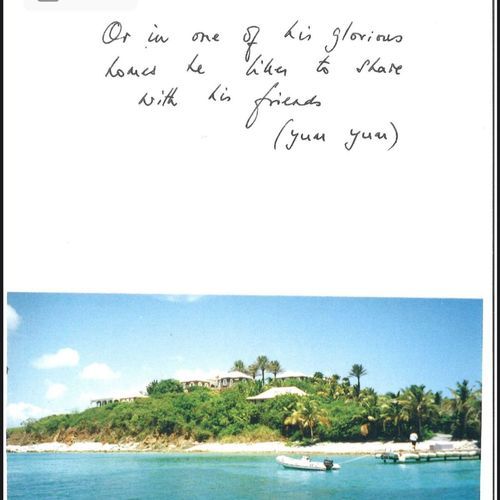 Or in one of his glorious
homes he likes to share
with his friends
(yum yum)